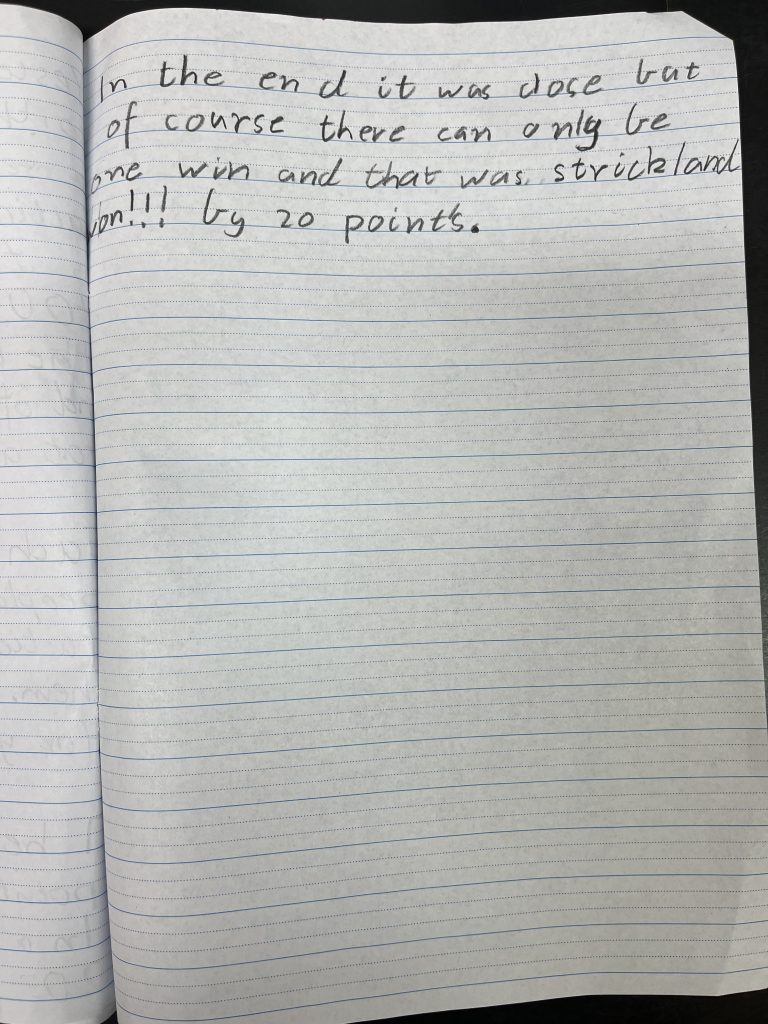 In the end it was close but
of course there can only be
one win and that was strickland
won!!! by 20 point's.